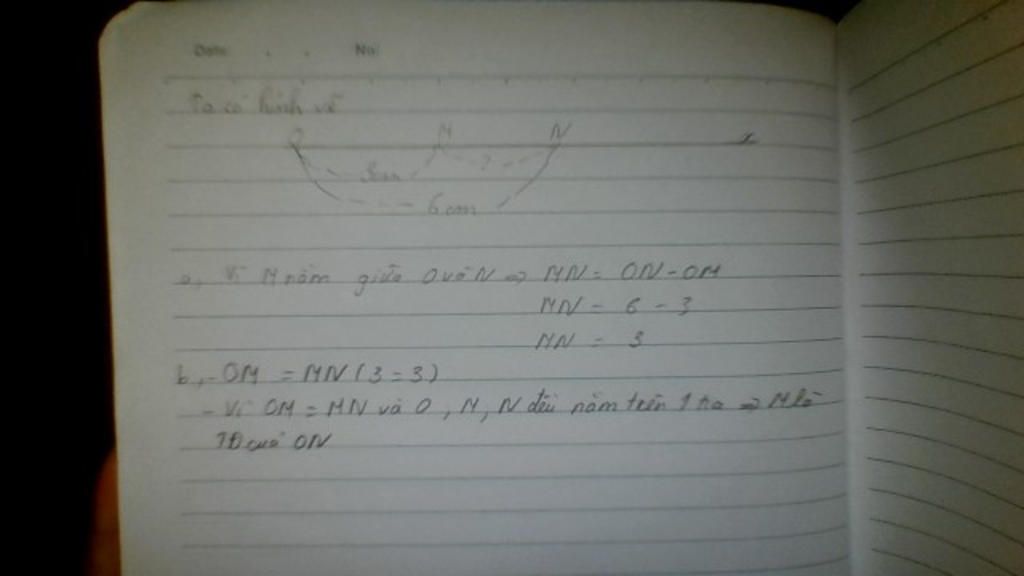 Date . . No:
Ta có hình vẽ
O M N x
3cm ?
6 cm
a, Vì M nằm giữa O và N => MN = ON - OM
MN = 6 - 3
MN = 3
b, - OM = MN (3 = 3)
- Vì OM = MN và O, M, N đều nằm trên 1 tia => M là
TĐ của ON